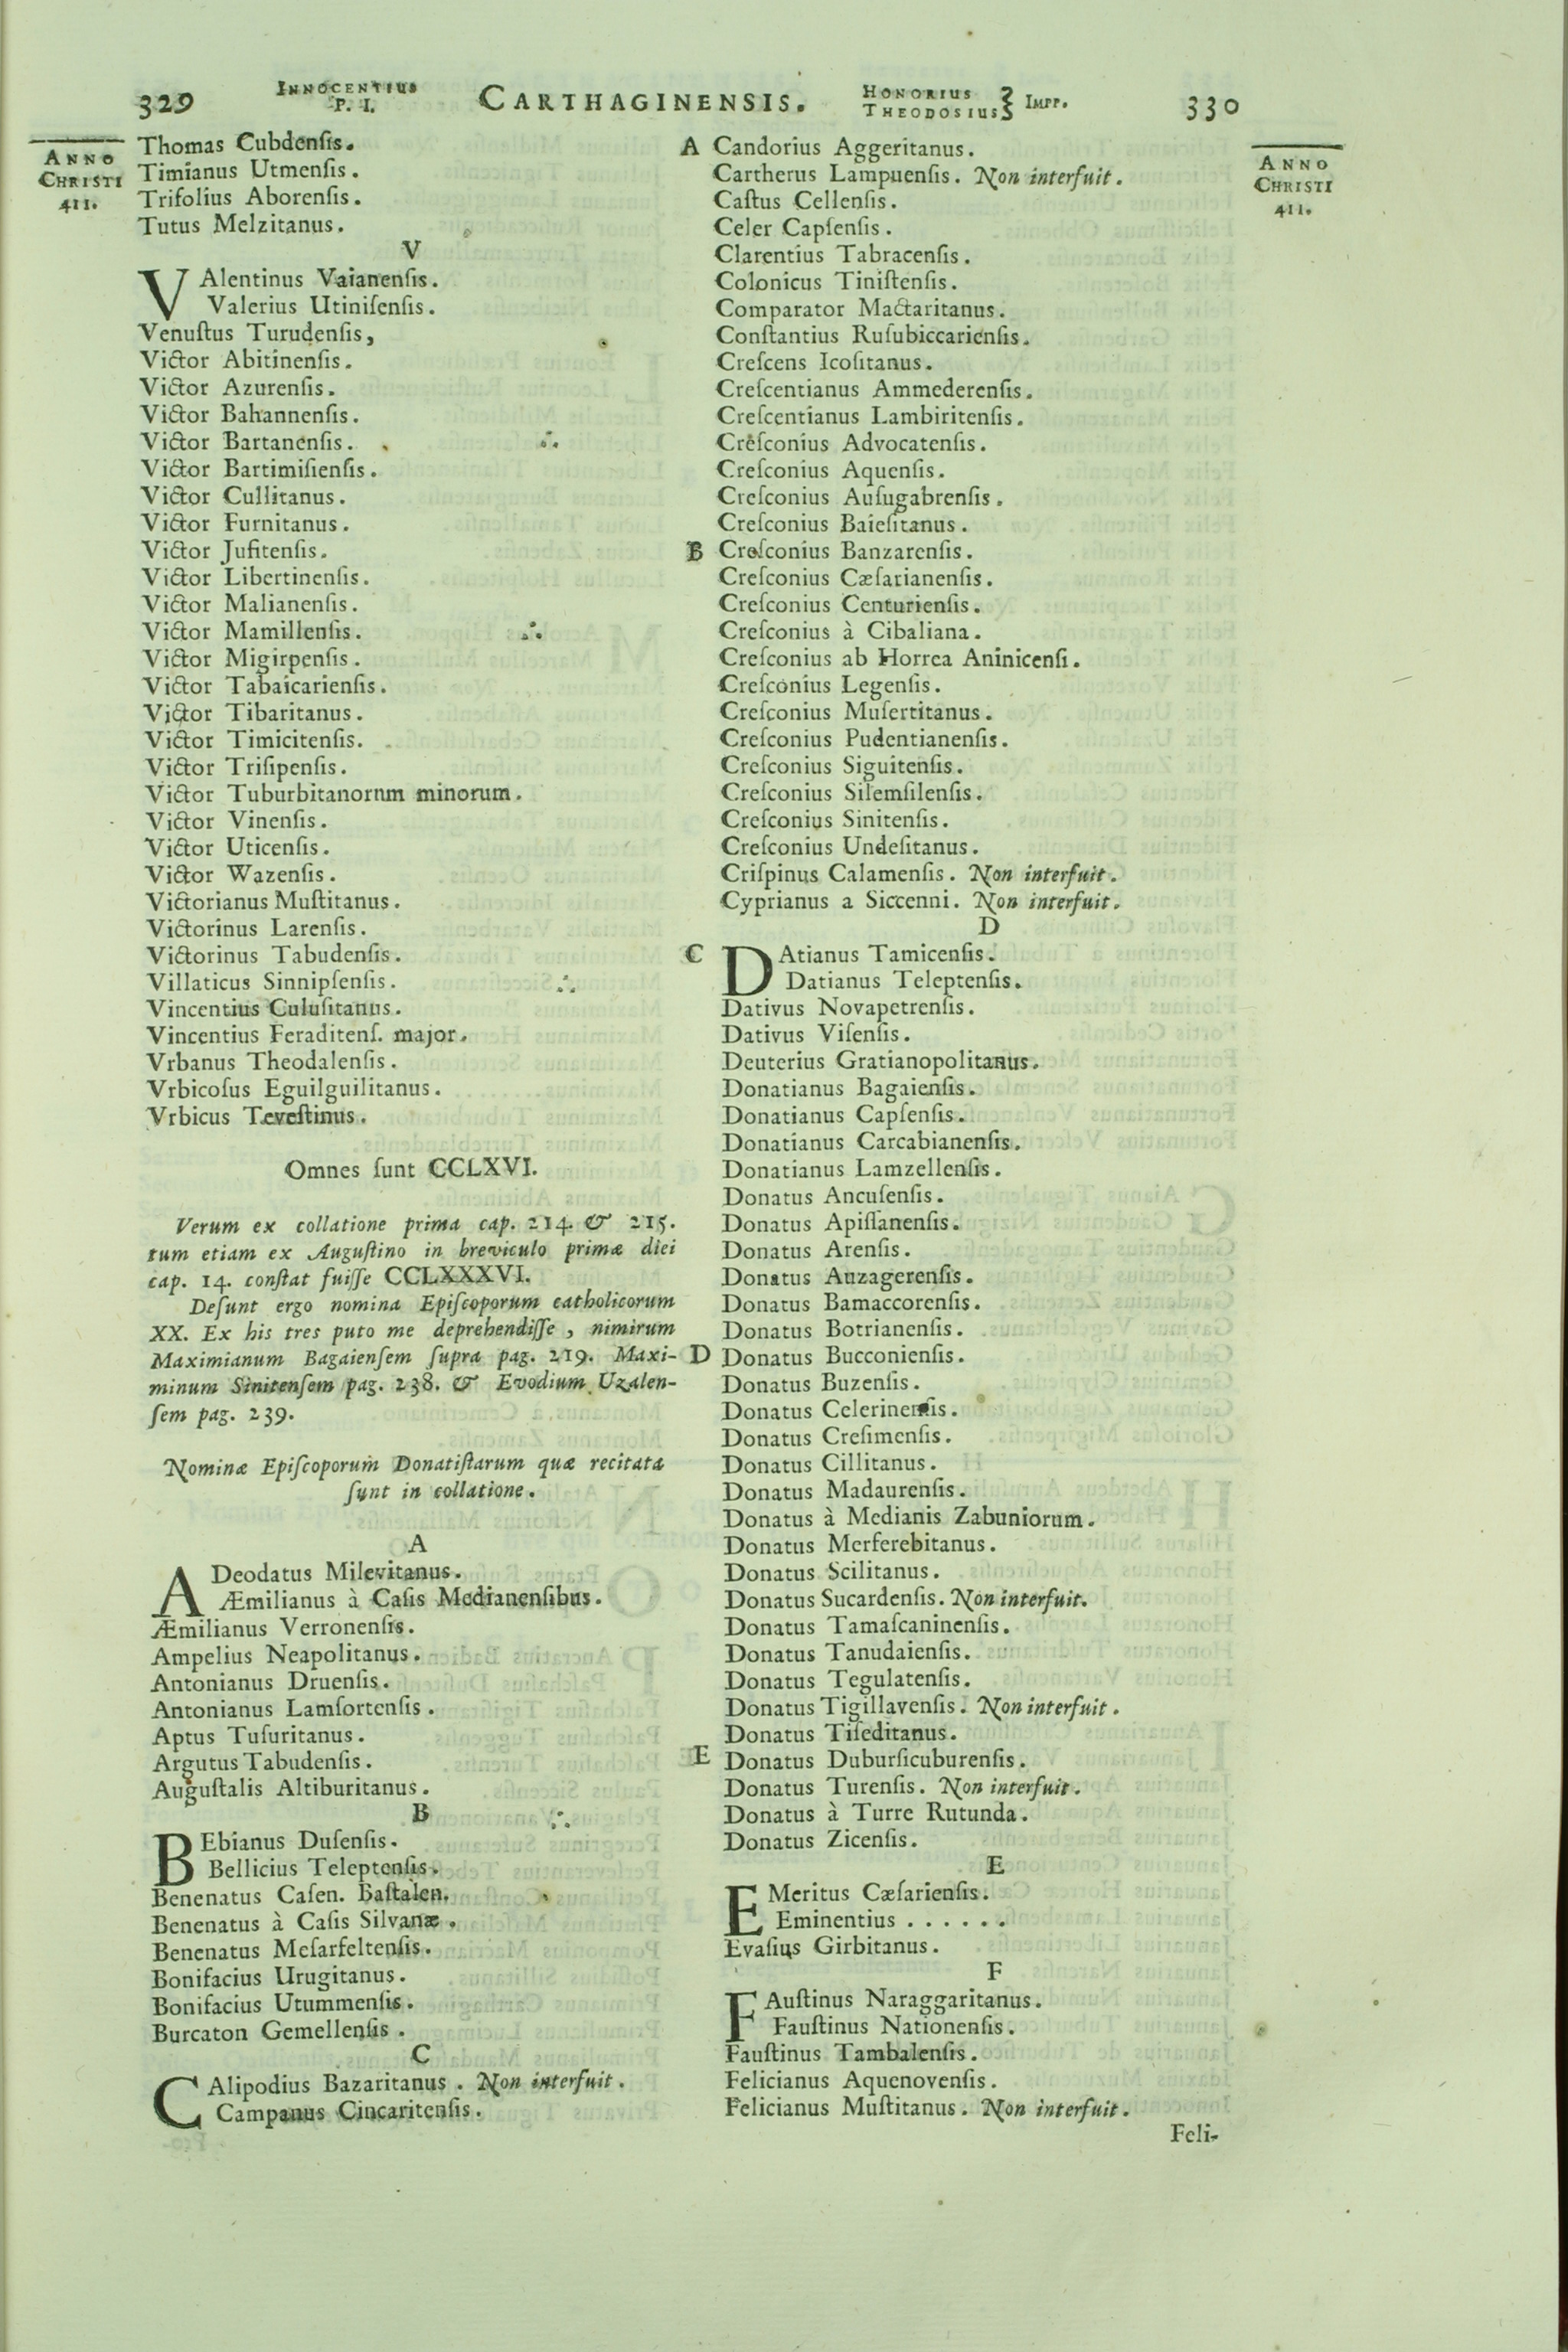 329 INNOCENTIUS P. I. CARTHAGINENSIS. HONORIUS THEODOSIUS } IMPP. 330
ANNO
CHRISTI
411.
Thomas Cubdenſis.
Timianus Utmenſis.
Trifolius Aborenſis.
Tutus Melzitanus.
V
VAlentinus Vaianenſis.
Valerius Utiniſenſis.
Venuſtus Turudenſis,
Victor Abitinenſis.
Victor Azurenſis.
Victor Bahannenſis.
Victor Bartanenſis.
Victor Bartimiſienſis.
Victor Cullitanus.
Victor Furnitanus.
Victor Juſitenſis.
Victor Libertinenſis.
Victor Malianenſis.
Victor Mamillenſis.
Victor Migirpenſis.
Victor Tabaicarienſis.
Victor Tibaritanus.
Victor Timicitenſis.
Victor Triſipenſis.
Victor Tuburbitanornm minorum.
Victor Vinenſis.
Victor Uticenſis.
Victor Wazenſis.
Victorianus Muſtitanus.
Victorinus Larenſis.
Victorinus Tabudenſis.
Villaticus Sinnipſenſis.
Vincentius Culuſitanus.
Vincentius Feraditenſ. major.
Vrbanus Theodalenſis.
Vrbicoſus Eguilguilitanus.
Vrbicus Teveſtinus.
Omnes ſunt CCLXVI.
Verum ex collatione prima cap. 214. & 215.
tum etiam ex Auguſtino in breviculo primæ diei
cap. 14. conſtat fuiſſe CCLXXXVI.
Deſunt ergo nomina Epiſcoporum catholicorum
XX. Ex his tres puto me deprehendiſſe, nimirum
Maximianum Bagaienſem ſupra pag. 219. Maxi-
minum Sinitenſem pag. 238. & Evodium Uzalen-
ſem pag. 239.
Nominæ Epiſcoporum Donatiſtarum quæ recitata
ſunt in collatione.
A
ADeodatus Milevitanus.
Æmilianus à Caſis Medianenſibus.
Æmilianus Verronenſis.
Ampelius Neapolitanus.
Antonianus Druenſis.
Antonianus Lamſortenſis.
Aptus Tuſuritanus.
Argutus Tabudenſis.
Auguſtalis Altiburitanus.
B
BEbianus Duſenſis.
Bellicius Teleptenſis.
Benenatus Caſen. Baſtalen.
Benenatus à Caſis Silvanæ.
Benenatus Meſarfeltenſis.
Bonifacius Urugitanus.
Bonifacius Utummenſis.
Burcaton Gemellenſis.
C
CAlipodius Bazaritanus. Non interfuit.
Campanus Cincaritenſis.
A Candorius Aggeritanus.
Cartherus Lampuenſis. Non interfuit.
Caſtus Cellenſis.
Celer Capſenſis.
Clarentius Tabracenſis.
Colonicus Tiniſtenſis.
Comparator Mactaritanus.
Conſtantius Ruſubiccarienſis.
Creſcens Icoſitanus.
Creſcentianus Ammederenſis.
Creſcentianus Lambiritenſis.
Creſconius Advocatenſis.
Creſconius Aquenſis.
Creſconius Auſugabrenſis.
Creſconius Baieſitanus.
B Creſconius Banzarenſis.
Creſconius Cæſarianenſis.
Creſconius Centurienſis.
Creſconius à Cibaliana.
Creſconius ab Horrea Aninicenſi.
Creſconius Legenſis.
Creſconius Muſertitanus.
Creſconius Pudentianenſis.
Creſconius Siguitenſis.
Creſconius Silemſilenſis.
Creſconius Sinitenſis.
Creſconius Undeſitanus.
Criſpinus Calamenſis. Non interfuit.
Cyprianus a Siccenni. Non interfuit.
D
C DAtianus Tamicenſis.
Datianus Teleptenſis.
Dativus Novapetrenſis.
Dativus Viſenſis.
Deuterius Gratianopolitanus.
Donatianus Bagaienſis.
Donatianus Capſenſis.
Donatianus Carcabianenſis.
Donatianus Lamzellenſis.
Donatus Ancuſenſis.
Donatus Apiſſanenſis.
Donatus Arenſis.
Donatus Auzagerenſis.
Donatus Bamaccorenſis.
Donatus Botrianenſis.
D Donatus Bucconienſis.
Donatus Buzenſis.
Donatus Celerinenſis.
Donatus Creſimenſis.
Donatus Cillitanus.
Donatus Madaurenſis.
Donatus à Medianis Zabuniorum.
Donatus Merferebitanus.
Donatus Scilitanus.
Donatus Sucardenſis. Non interfuit.
Donatus Tamaſcaninenſis.
Donatus Tanudaienſis.
Donatus Tegulatenſis.
Donatus Tigillavenſis. Non interfuit.
Donatus Tiſeditanus.
E Donatus Duburſicuburenſis.
Donatus Turenſis. Non interfuit.
Donatus à Turre Rutunda.
Donatus Zicenſis.
E
EMeritus Cæſarienſis.
Eminentius . . . . . .
Evaſius Girbitanus.
F
FAuſtinus Naraggaritanus.
Fauſtinus Nationenſis.
Fauſtinus Tambalenſis.
Felicianus Aquenovenſis.
Felicianus Muſtitanus. Non interfuit.
Feli-
ANNO
CHRISTI
411.